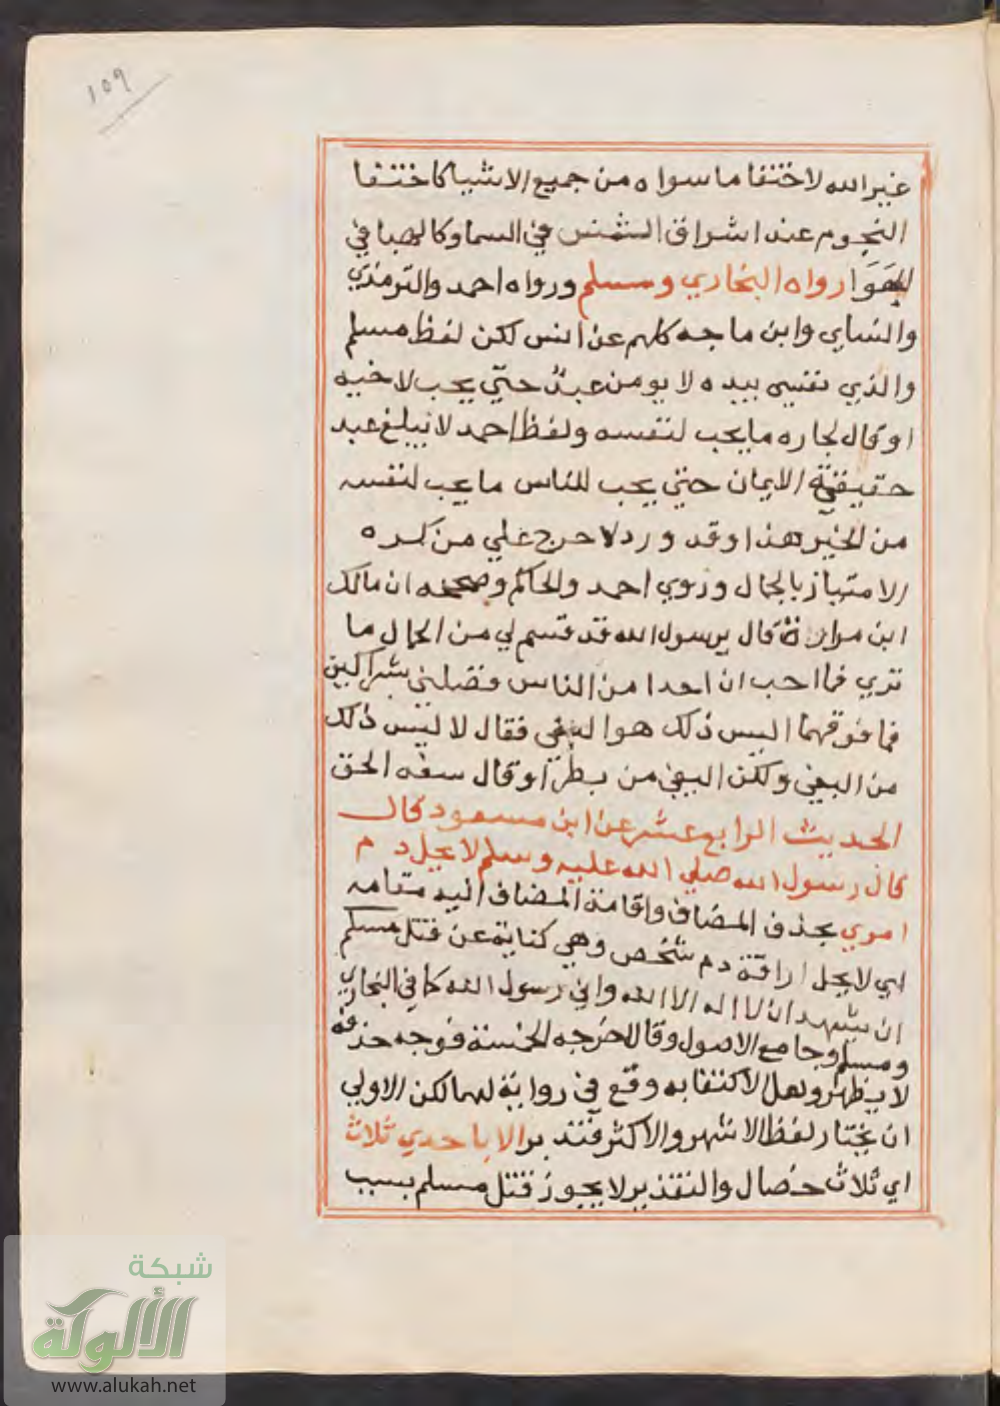 ١٥٩
غير الله لاختفا ما سواه من جميع الاشيا كاختفا
النجوم عند اشراق الشمس في السما وكالهبا في
الهَوَا رواه البخاري ومسلم ورواه احمد والترمذي
والنساي وابن ماجه كلهم عن انس لكن لفظ مسلم
والذي نفسي بيده لا يومن عبد حتي يحب لاخيه
او قال لجاره ما يحب لنفسه ولفظ احمد لا يبلغ عبد
حقيقة الايمان حتي يحب للناس ما يحب لنفسه
من الخير هذا وقد ورد لا حرج علي من كره
الامتياز بالجمال وروي احمد والحاكم وصححه ان مالك
ابن مرارة قال يرسول الله قد قسم لي من الجمال ما
تري فما احب ان احدا من الناس فضلني بشراكين
فما فوقهما اليس ذلك هو البغي فقال لا ليس ذلك
من البغي ولكن البغي من بطر او قال سفه الحق
الحديث الرابع عشر عن ابن مسعود قال
قال رسول الله صلي الله عليه وسلم لا يحل دم
امري بحذف المضاف واقامة المضاف اليه مقامه
اي لا يحل اراقة دم شخص وهي كناية عن قتل مسلم
ان يشهد ان لا اله الا الله واني رسول الله كما في البخاري
ومسلم وجامع الاصول وقال اخرجه الخمسة فوجه حذفه
لا يظهر ولعل الاكتفا به وقع في رواية لهما لكن الاولي
ان يختار لفظ الاشهر والاكثر فتدبر الا باحدي ثلاث
اي ثلاث خصال والتقدير لا يجوز قتل مسلم بسبب
شبكة
الألوكة
www.alukah.net